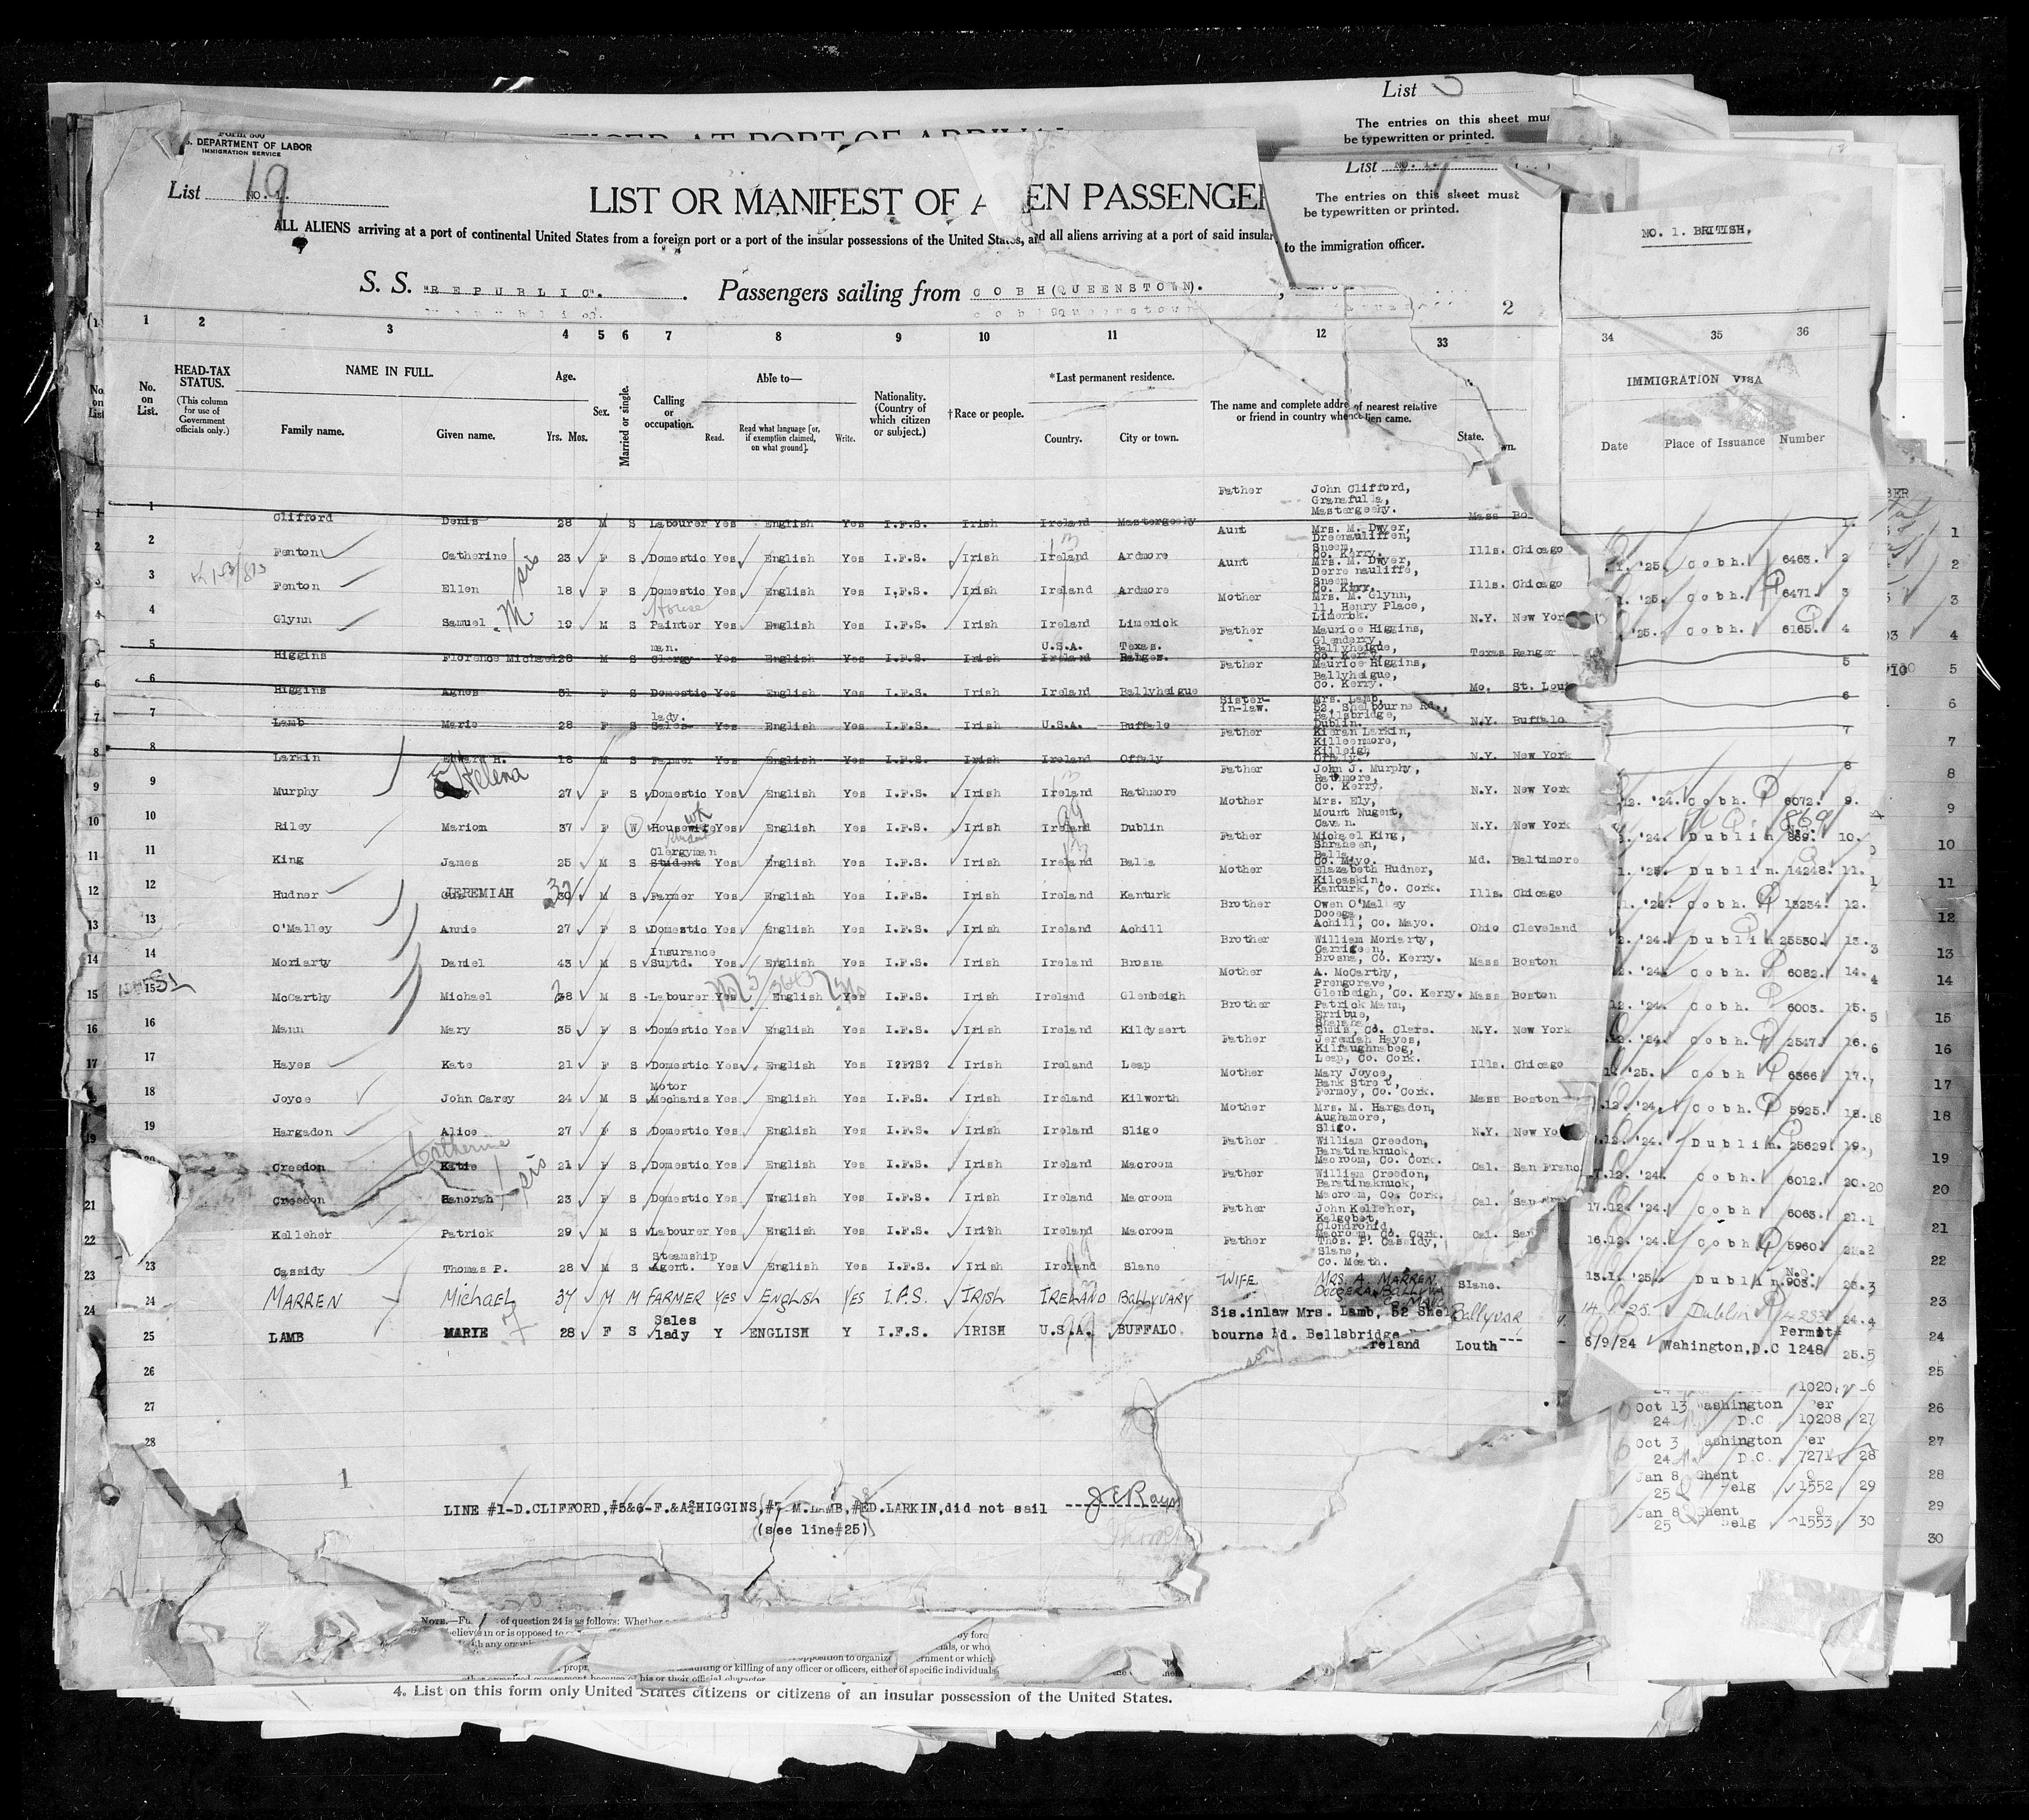 List
The entries on this sheet mus
be typewritten or printed.
Form 500
DEPARTMENT OF LABOR
IMMIGRATION SERVICE
List NO. 1.
19
List NO. 1.
The entries on this sheet must
be typewritten or printed.
LIST OR MANIFEST OF A EN PASSENGER
ALL ALIENS arriving at a port of continental United States from a foreign port or a port of the insular possessions of the United States, and all aliens arriving at a port of said insular
to the immigration officer.
NO. 1. BRITISH,
S. S. "REPUBLIC". Passengers sailing from COBH(QUEENSTOWN).,
2
1 2 3 4 5 6 7 8 9 10 11 12 33 34 35 36
No. on List.
HEAD-TAX STATUS.
(This column for use of Government officials only.)
NAME IN FULL.
Family name. Given name.
Age.
Yrs. Mos.
Sex.
Married or single.
Calling or occupation.
Able to—
Read. Read what language [or, if exemption claimed, on what ground]. Write.
Nationality. (Country of which citizen or subject.)
†Race or people.
*Last permanent residence.
Country. City or town.
The name and complete addre of nearest relative or friend in country whence alien came.
State.
IMMIGRATION VISA
Date Place of Issuance Number
1 Clifford Denis 28 M S Labourer Yes English Yes I.F.S. Irish Ireland Mastergeehy Father John Clifford, Granafulla, Mastergeehy. Mass Bo 1.
2 Fenton Catherine 23 F S Domestic Yes English Yes I.F.S. Irish Ireland Ardmore Aunt Mrs. M. Dwyer, Sneem, Co. Kerry. Ills. Chicago 1. '25. Cobh. 6463. 2
sis
3 Fenton Ellen 18 F S Domestic Yes English Yes I.F.S. Irish Ireland Ardmore Aunt Mrs. M. Dwyer, Derre nauliffe, Sneem, Co. Kerry. Ills. Chicago 1. '25. Cobh. 6471. 3
4 Glynn Samuel M. 19 M S House Painter Yes English Yes I.F.S. Irish Ireland Limerick Mother Mrs. M. Glynn, 11, Henry Place, Limerick. N.Y. New Yor '25. Cobh. 6165. 4
5 Higgins Florence Michael 28 M S Clergy man. Yes English Yes I.F.S. Irish U.S.A. Ireland Texas. Ranger. Father Maurice Higgins, Glenderry, Ballyheigue, Co. Kerry. Texas Ranger 5
6 Higgins Agnes 31 F S Domestic Yes English Yes I.F.S. Irish Ireland Ballyheigue Father Maurice Higgins, Ballyheigue, Co. Kerry. Mo. St. Loui 6
7 Lamb Marie 28 F S Sales lady. Yes English Yes I.F.S. Irish U.S.A. Buffalo Sister-in-law. Mrs. Lamb, 52, Shelbourne Rd., Ballsbridge, Dublin. N.Y. Buffalo 7
8 Larkin Edward H. 18 M S Farmer Yes English Yes I.F.S. Irish Ireland Offaly Father Kieran Larkin, Killeenmore, Killeigh, Offaly. N.Y. New York 8
9 Murphy Helena 27 F S Domestic Yes English Yes I.F.S. Irish Ireland Rathmore Father John J. Murphy, Rathmore, Co. Kerry. N.Y. New York 12. '24. Cobh. 6072. 9.
10 Riley Marion 37 F W Housewife Yes English Yes I.F.S. Irish Ireland Dublin Mother Mrs. Ely, Mount Nugent, Cavan. N.Y. New York '24. Dublin 869. 10.
11 King James 25 M S Clergyman Student Yes English Yes I.F.S. Irish Ireland Balla Father Michael King, Shraheen, Balla, Co. Mayo. Md. Baltimore 1. '25. Dublin. 14248. 11.
12 Hudner Gus JEREMIAH 30 M S Farmer Yes English Yes I.F.S. Irish Ireland Kanturk Mother Elazabeth Hudner, Kilcaskin, Kanturk, Co. Cork. Ills. Chicago 1. '24. Cobh. 13234. 12.
13 O'Malley Annie 27 F S Domestic Yes English Yes I.F.S. Irish Ireland Achill Brother Owen O'Malley Dooega, Achill, Co. Mayo. Ohio Cleveland 2. '24. Dublin 25530. 13.
14 Moriarty Daniel 43 M S Insurance Suptd. Yes English Yes I.F.S. Irish Ireland Brosna Brother William Moriarty, Carrigeen, Brosna, Co. Kerry. Mass Boston '24. Cobh. 6082. 14.
15 McCarthy Michael 38 M S Labourer Yes English Yes I.F.S. Irish Ireland Glenbeigh Mother A. McCarthy, Prengorave, Glenbeigh, Co. Kerry. Mass Boston 12. '24. Cobh. 6003. 15.
16 Mann Mary 35 F S Domestic Yes English Yes I.F.S. Irish Ireland Kildysert Brother Patrick Mann, Erribue, Ennis, Co. Clare. N.Y. New York 12. '24. Cobh. 2547. 16.
17 Hayes Kate 21 F S Domestic Yes English Yes I?F?S? Irish Ireland Leap Father Jeremiah Hayes, Kilfaughnabeg, Leap, Co. Cork. Ills. Chicago 1. '25. Cobh 6366 17.
18 Joyce John Carey 24 M S Motor Mechanis Yes English Yes I.F.S. Irish Ireland Kilworth Mother Mary Joyce, Bank Street, Fermoy, Co. Cork. Mass Boston .12. '24. Cobh. 5925. 18.
19 Hargadon Alice 27 F S Domestic Yes English Yes I.F.S. Irish Ireland Sligo Mother Mrs. M. Hargadon, Aughamore, Sligo. N.Y. New Yo .12. '24. Dublin. 25629 19.
20 Creedon Katie Catherine 21 F S Domestic Yes English Yes I.F.S. Irish Ireland Macroom Father William Creedon, Baratinaknuck, Macroom, Co. Cork. Cal. San Franc .12. '24. Cobh. 6012. 20.
sis
21 Creedon Hanorah 23 F S Domestic Yes English Yes I.F.S. Irish Ireland Macroom Father William Creedon, Baratinaknuck, Macroom, Co. Cork. Cal. San 17.12. '24. Cobh 6063. 21.
22 Kelleher Patrick 29 M S Labourer Yes English Yes I.F.S. Irish Ireland Macroom Father John Kelleher, Kelgobet, Clondrohid, Macroom, Co. Cork. Cal. San 16.12. '24. Cobh 5960.
23 Cassidy Thomas P. 28 M S Steamship Agent. Yes English Yes I.F.S. Irish Ireland Slane Father Thos. P. Cassidy, Slane, Co. Meath. Slane. 13.1. '25. Dublin. No. 903.
24 MARREN Michael 37 M M FARMER YES ENGLISH YES I.F.S. IRISH IRELAND BALLYVARY WIFE MRS. A. MARREN BALLYVAR 25. Dublin
25 LAMB MARIE 28 F S Sales lady Y ENGLISH Y I.F.S. IRISH U.S.A. BUFFALO. Sis.inlaw Mrs. Lamb, 52 Shel bourne Rd. Bellsbridge Ireland Louth --- 6/9/24 Wahington,D.C Permit# 1248
26
27
28
1
Oct 13 ashington er
24 D.C. 10208 27
Oct 3 ashington er
24 D.C. 7271 28
Jan 8 Ghent
25 elg 1552 29
Jan 8 Ghent
25 elg 1553 30
LINE #1-D.CLIFFORD,#5&6-F.&A HIGGINS,#7 M.LAMB,#ED.LARKIN,did not sail
(see line#25)
NOTE.—Fu of question 24 is as follows: Whether
believes in or is opposed to
by force
als, or who
opposition to organize ernment or which
propr ulting or killing of any officer or officers, either of specific individuals
his or their official character
4. List on this form only United States citizens or citizens of an insular possession of the United States.